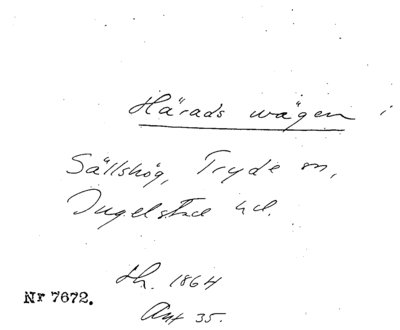 Härads wägen i
Sällshög, Tryde sn,
Ingelstad hd.
th. 1864
Ant 35.
Nr 7672.